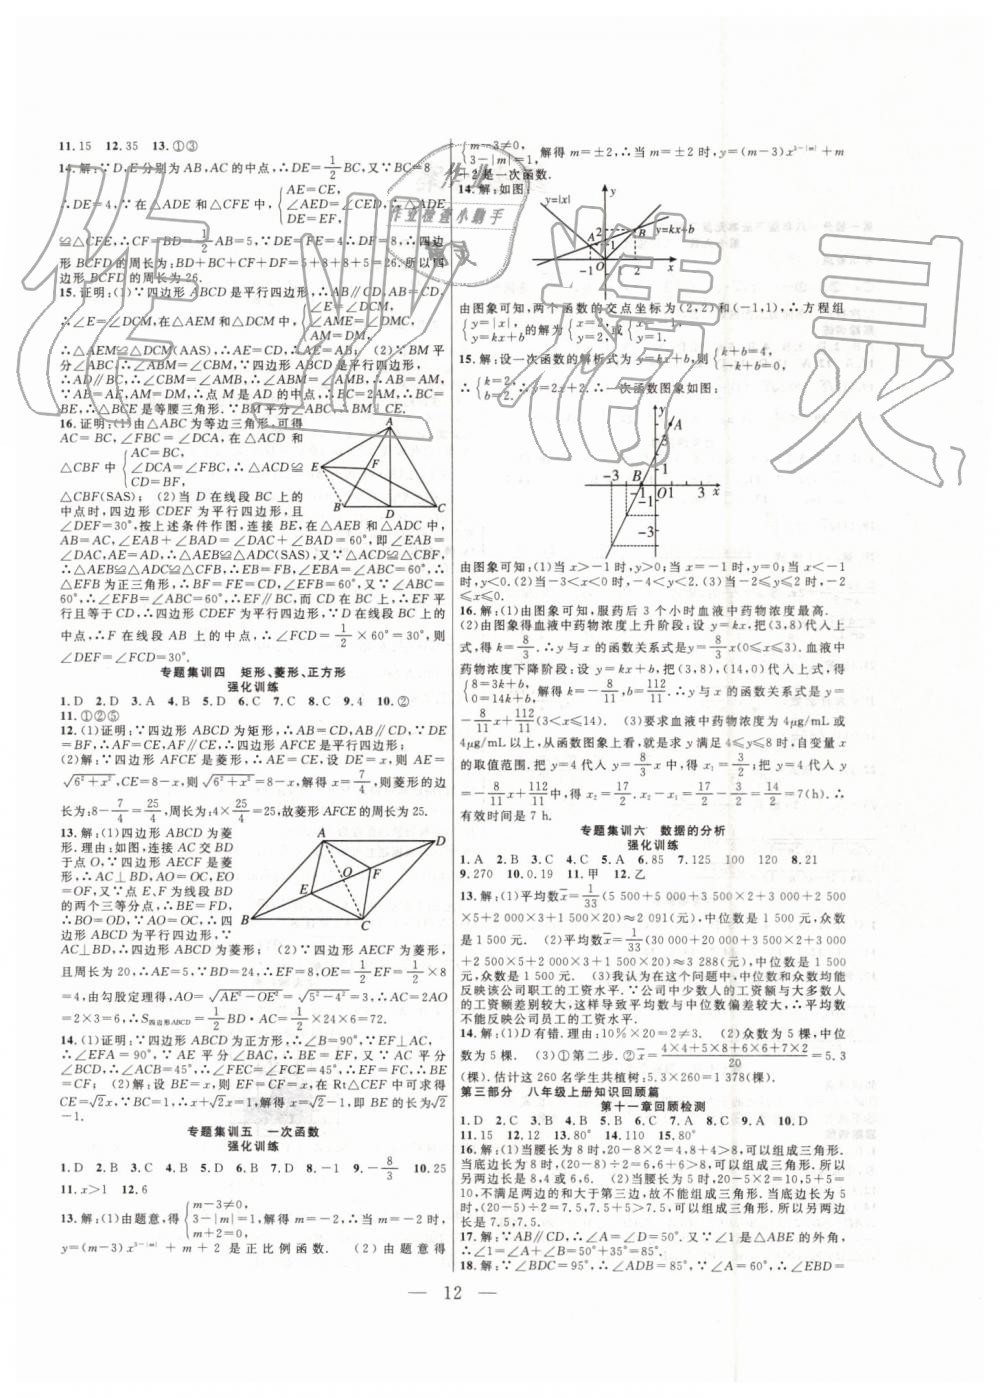 11.15  12.35  13.①③
14.解:∵D,E分别为AB,AC的中点,∴DE=1/2BC,又∵BC=8
∴DE=4,在△ADE和△CFE中,{AE=CE, ∠AED=∠CED,∴△ADE DE=EF,
≌△CFE,∴CF=BD=1/2AB=5,∵DE=EF,∴EF=4,∴四边
形BCFD的周长为:BD+BC+CF+DF=5+8+5+8=26.所以四
边形BCFD的周长为26.
15.证明:(1)∵四边形ABCD是平行四边形,∴AB∥CD,AB=CD,
∴∠E=∠DCM,在△AEM和△DCM中,{∠E=∠DCM, ∠AME=∠DMC, AM=DM,
∴△AEM≌△DCM(AAS),∴CD=AE,∴AE=AB; (2)∵BM平
分∠ABC,∴∠ABM=∠CBM,∵四边形ABCD是平行四边形,
∴AD∥BC,∴∠CBM=∠AMB,∴∠ABM=∠AMB,∴AB=AM,
∵AB=AE,AM=DM,∴点M是AD的中点,∴BC=2AM,∴BC=
EB,∴△BCE是等腰三角形.∵BM平分∠ABC,∴BM⊥CE.
16.证明:(1)由△ABC为等边三角形,可得
AC=BC,∠FBC=∠DCA,在△ACD和
△CBF中{AC=BC, ∠DCA=∠FBC,∴△ACD≌ CD=BF,
△CBF(SAS); (2)当D在线段BC上的
中点时,四边形CDEF为平行四边形,且
∠DEF=30°,按上述条件作图,连接BE,在△AEB和△ADC中,
AB=AC,∠EAB+∠BAD=∠DAC+∠BAD=60°,即∠EAB=
∠DAC,AE=AD,∴△AEB≌△ADC(SAS),又∵△ACD≌△CBF,
∴△AEB≌△CFB,∴EB=FB,∠EBA=∠ABC=60°,
∴△EFB为正三角形,∴EF=FB=CD,∠EFB=60°,又∵∠ABC=
60°,∴∠EFB=∠ABC=60°,∴EF∥BC,而CD在BC上,∴EF平
行且等于CD,∴四边形CDEF为平行四边形,∵D在线段BC上的
中点,∴F在线段AB上的中点,∴∠FCD=1/2×60°=30°,则
∠DEF=∠FCD=30°.
专题集训四 矩形、菱形、正方形
强化训练
1.D  2.D  3.A  4.B  5.D  6.C  7.C  8.C  9.4  10.②
11.①②⑤
12.(1)证明:∵四边形ABCD为矩形,∴AB=CD,AB∥CD,∵DF
=BE,∴AF=CE,AF∥CE,∴四边形AFCE是平行四边形;
(2)解:∵四边形AFCE是菱形,∴AE=CE,设DE=x,则AE=
√(6²+x²),CE=8-x,则√(6²+x²)=8-x,解得x=7/4,则菱形的边
长为:8-7/4=25/4,周长为:4×25/4=25,故菱形AFCE的周长为25.
13.解:(1)四边形ABCD为菱
形.理由:如图,连接AC交BD
于点O,∵四边形AECF是菱
形,∴AC⊥BD,AO=OC,EO
=OF,又∵点E、F为线段BD
的两个三等分点,∴BE=FD,
∴BO=OD,∵AO=OC,∴四
边形ABCD为平行四边形,∵
AC⊥BD,∴四边形ABCD为菱形; (2)∵四边形AECF为菱形,
且周长为20,∴AE=5,∵BD=24,∴EF=8,OE=1/2EF=1/2×8
=4,由勾股定理得,AO=√(AE²-OE²)=√(5²-4²)=3,∴AC=2AO
=2×3=6,∴S四边形ABCD=1/2BD·AC=1/2×24×6=72.
14.(1)证明:∵四边形ABCD为正方形,∴∠B=90°,∵EF⊥AC,
∴∠EFA=90°,∵AE平分∠BAC,∴BE=EF,又∵AC是正方形
ABCD的对角线,∴AC平分∠BCD,∴∠ACB=45°,∴∠FEC=∠FCE=45°,∴EF=FC,∴BE
=CF; (2)解:设BE=x,则EF=CF=x,在Rt△CEF中可求得
CE=√2x,∵BC=1,∴x+√2x=1,解得x=√2-1,即BE的长为
√2-1.
专题集训五 一次函数
强化训练
1.D  2.B  3.C  4.B  5.D  6.B  7.D  8.-1  9.-8/3  10.25
11.x>1  12.6
13.解:(1)由题意,得{m-3≠0, 3-|m|=1, m+2=0,解得m=-2,∴当m=-2时,
y=(m-3)x^(3-|m|)+m+2是正比例函数. (2)由题意得
{m-3≠0, 3-|m|=1,解得m=±2,∴当m=±2时,y=(m-3)x^(3-|m|)+m
+2是一次函数.
14.解:如图:
由图象可知,两个函数的交点坐标为(2,2)和(-1,1),∴方程组
{y=|x|, y=kx+b的解为{x=2, y=2.或{x=-1, y=1.
15.解:设一次函数的解析式为y=kx+b,则{k+b=4, -k+b=0,
∴{k=2, b=2.∴y=2x+2.∴一次函数图象如图:
由图象可知:(1)当x>-1时,y>0;当x=-1时,y=0;当x<-1
时,y<0.(2)当-3<x<0时,-4<y<2.(3)当-2≤y≤2时,-2
≤x≤0.
16.解:(1)由图象可知,服药后3个小时血液中药物浓度最高.
(2)由图象得血液中药物浓度上升阶段:设y=kx,把(3,8)代入上
式,得8=3k,k=8/3.∴y与x的函数关系式是y=8/3x(0≤x≤3).血液中
药物浓度下降阶段:设y=kx+b,把(3,8),(14,0)代入上式,得
{8=3k+b, 0=14k+b,解得k=-8/11,b=112/11,∴y与x的函数关系式是y=
-8/11x+112/11(3<x≤14). (3)要求血液中药物浓度为4μg/mL或
4μg/mL以上,从函数图象上看,就是求y满足4≤y≤8时,自变量x
的取值范围.把y=4代入y=8/3x,得x₁=3/2;把y=4代入y=
-8/11x+112/11,得x₂=17/2.x₂-x₁=17/2-3/2=14/2=7(h).∴
有效时间是7 h.
专题集训六 数据的分析
强化训练
1.A  2.B  3.C  4.C  5.A  6.85  7.125  100  120  8.21
9.270  10.0.19  11.甲  12.乙
13.解:(1)平均数x̄=1/33(5 500+5 000+3 500×2+3 000+2 500
×5+2 000×3+1 500×20)≈2 091(元),中位数是1 500元,众数
是1 500元. (2)平均数x̄=1/33(30 000+20 000+3 500×2+3 000
+2 500×5+2 000×3+1 500×20)≈3 288(元),中位数是1 500
元,众数是1 500元. (3)我认为在这个问题中,中位数和众数均能
反映该公司职工的工资水平.∵公司中少数人的工资额与大多数人
的工资额差别较大,这样导致平均数与中位数偏差较大,∴平均数
不能反映公司员工的工资水平.
14.解:(1)D有错.理由:10%×20=2≠3. (2)众数为5棵,中位
数为5棵. (3)①第二步.②x̄=(4×4+5×8+6×6+7×2)/20=5.3
(棵).估计这260名学生共植树:5.3×260=1 378(棵).
第三部分 八年级上册知识回顾篇
第十一章回顾检测
1.D  2.B  3.C  4.C  5.C  6.B  7.B  8.C  9.A  10.D
11.15  12.12  13.80°  14.110  15.80°
16.解:(1)当腰长为8时,20-8×2=4,8+4>8,可以组成三角形.
当底边长为8时,(20-8)÷2=6,6+6>8,可以组成三角形.所以
另两边长是8,4或6,6. (2)当腰长为5时,20-5×2=10,5+5=
10,不满足两边的和大于第三边,故不能组成三角形.当底边长为5
时,(20-5)÷2=7.5,7.5+5>7.5,可以组成三角形.所以另两边
长是7.5,7.5.
17.解:∵AB∥CD,∴∠A=∠D=50°.又∵∠1是△ABE的外角,
∴∠1=∠A+∠B=50°+35°=85°.
18.解:∵∠BDC=95°,∴∠ADB=85°,∵∠A=60°,∴∠EBD=
— 12 —